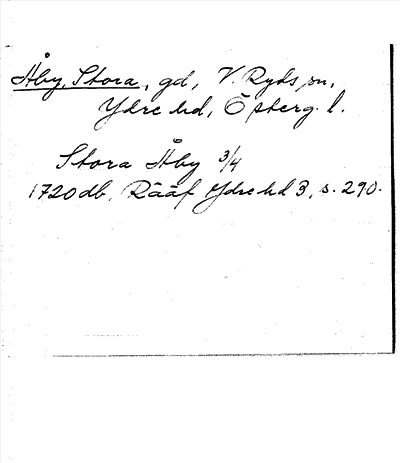 Åby, Stora, gd, V. Ryds sn,
Ydre hd, Östberg. l.
Stora Åby 3/4
1720 db, Rääf Ydre hd 3, s. 290.